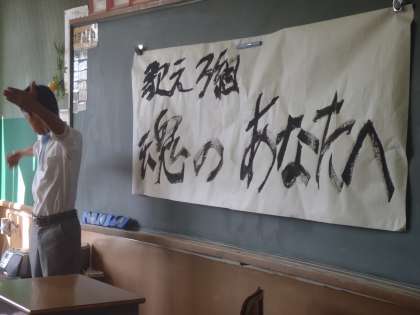 歌え 3組
魂の あなたへ